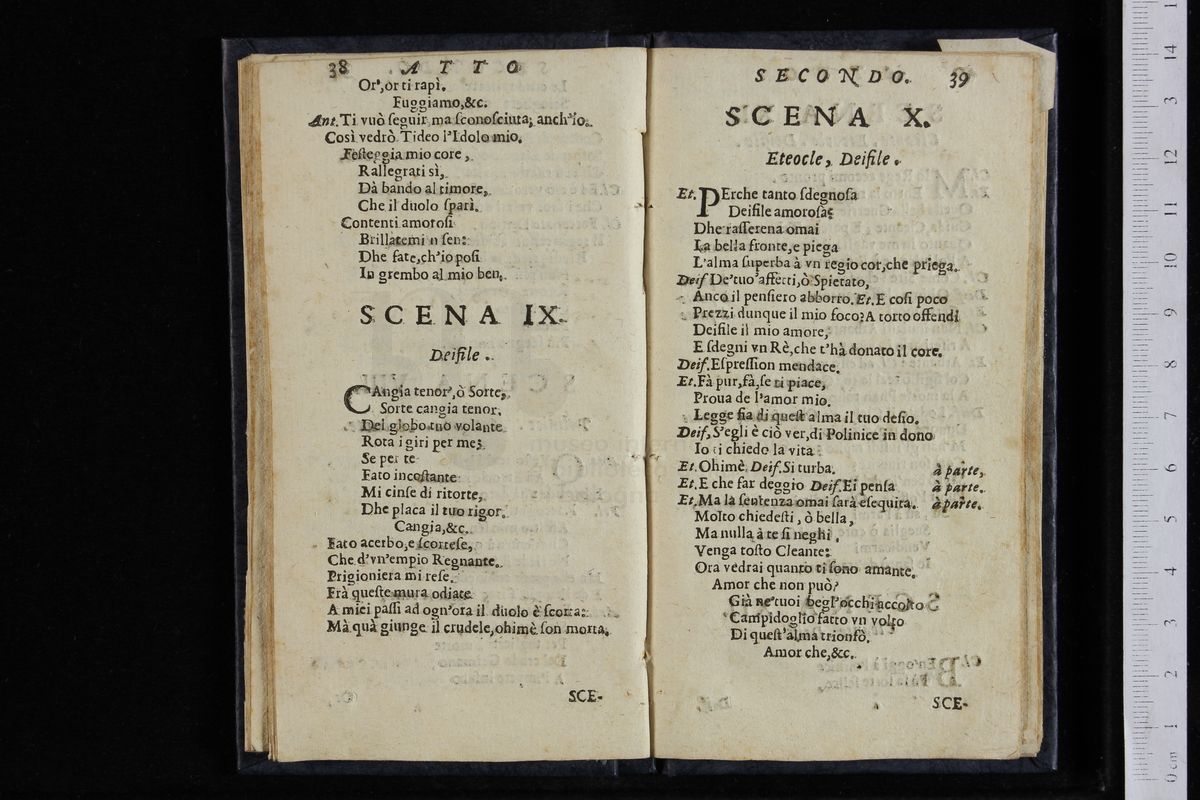 38 ATTO
Or', or ti rapì.
Fuggiamo,&c.
Ant. Ti vuò ſeguir ma ſconoſciuta; anch'io.
Così vedrò Tideo l'Idolo mio.
Feſteggia mio core,
Rallegrati sì,
Dà bando al timore,
Che il duolo ſparì.
Contenti amoroſi
Brillatemi n ſen:
Dhe fate,ch'io poſi
In grembo al mio ben.
SCENA IX.
Deifile.
CAngia tenor',ò Sorte,
Sorte cangia tenor,
Del globo tuo volante
Rota i giri per me;
Se per te
Fato incoſtante
Mi cinſe di ritorte,
Dhe placa il tuo rigor.
Cangia,&c.
Fato acerbo,e ſcorteſe,
Che d'vn'empio Regnante
Prigioniera mi reſe.
Frà queſte mura odiate
A miei paſſi ad ogn'ora il duolo è ſcorta:
Mà quà giunge il crudele,ohimè ſon morta.
SCE-
SECONDO. 39
SCENA X.
Eteocle, Deifile.
Et. PErche tanto ſdegnoſa
Deifile amoroſa?
Dhe raſſerena omai
La bella fronte,e piega
L'alma ſuperba à vn regio cor,che priega.
Deif De'tuo'affetti,ò Spietato,
Anco il penſiero abborro. Et. E coſì poco
Prezzi dunque il mio foco? A torto offendi
Deifile il mio amore,
E ſdegni vn Rè,che t'hà donato il core.
Deif. Eſpreſſion mendace.
Et. Fà pur,fà,ſe ti piace,
Proua de l'amor mio.
Legge ſia di queſt'alma il tuo deſio.
Deif, S'egli è ciò ver,di Polinice in dono
Io ti chiedo la vita
Et. Ohimè. Deif. Si turba. à parte,
Et. E che far deggio Deif. Ei penſa à parte.
Et. Ma la ſentenza omai ſarà eſequita. à parte.
Molto chiedeſti, ò bella,
Ma nulla à te ſi neghi.
Venga toſto Cleante:
Ora vedrai quanto ti ſono amante.
Amor che non può?
Già ne'tuoi begl'occhi accolto
Campidoglio fatto vn volto
Di queſt'alma trionfò.
Amor che,&c.
SCE-